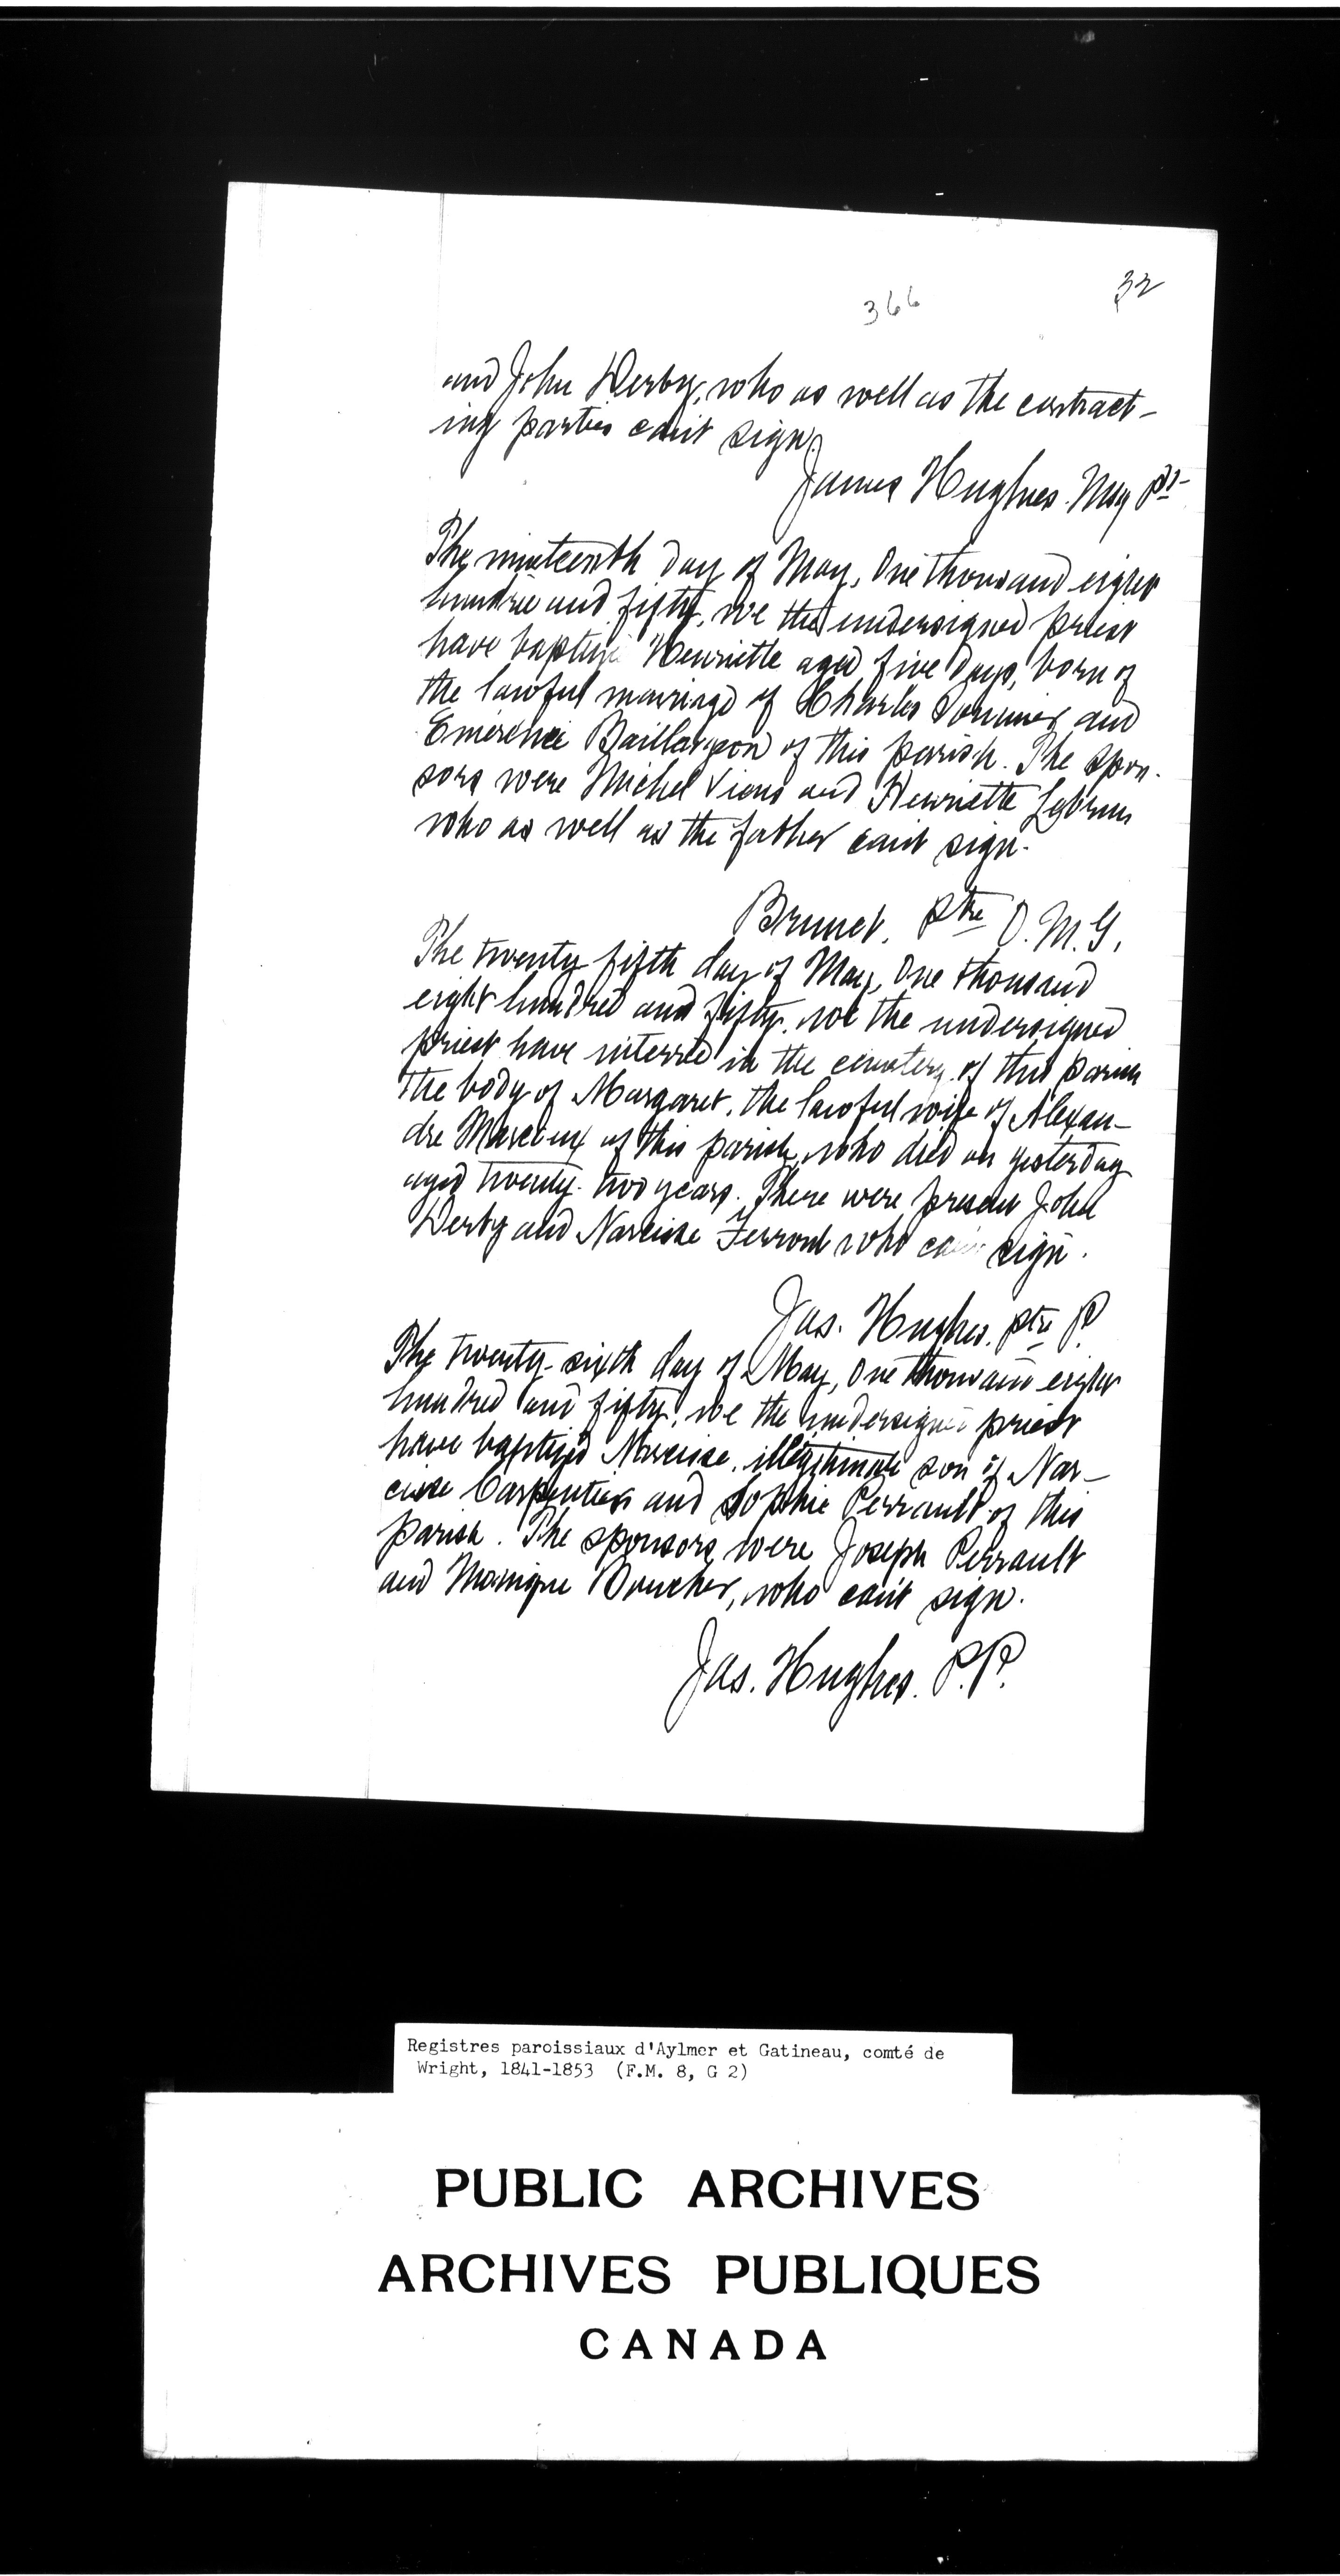 366
32
and John Derby, who as well as the contract-
ing parties can't sign.
James Hughes. Miss Pt
The nineteenth day of May, One thousand eight
hundred and fifty, we the undersigned priest
have baptized Henriette aged five days, born of
the lawful marriage of Charles and
Emérence Baillargeon of this parish. The spon-
sors were Michel Viens and Henriette Lebrun
who as well as the father can't sign.
Brunet. Ptre O.M.I.
The twenty fifth day of May, One thousand
eight hundred and fifty, we the undersigned
priest have interred in the cemetery of this parish
the body of Margaret, the lawful wife of Alexan-
dre of this parish, who died on yesterday
aged twenty-two years. There were present John
Derby and Narcisse who can't sign.
Jas. Hughes. ptre P.
The twenty-sixth day of May, One thousand eight
hundred and fifty, we the undersigned priest
have baptized Narcisse, illegitimate son of Nar-
cisse Carpentier and Sophie Perrault of this
parish. The sponsors were Joseph Perrault
and Monique Boucher, who can't sign.
Jas. Hughes. P.P.
Registres paroissiaux d'Aylmer et Gatineau, comté de
Wright, 1841-1853 (F.M. 8, G 2)
PUBLIC ARCHIVES
ARCHIVES PUBLIQUES
CANADA